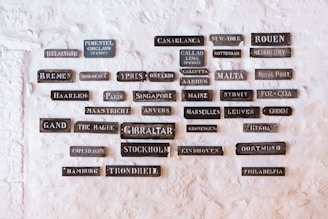 PIMENTEL
CASABLANCA
NEW-YORK
ROUEN
HELSINGOR
CALLAO
LIMA
ROTTERDAM
BREMEN
BORDEAUX
YPRES
ONTARIO
CALCUTTA
AARHUS
MALTA
ROYAL PORT
HAARLEM
PARIS
SINGAPORE
MAINZ
SYDNEY
FOZ-COA
MAASTRICHT
ANVERS
MARSEILLES
LEUVEN
GAND
THE HAGUE
GIBRALTAR
GRONINGEN
COPENHAGEN
STOCKHOLM
EINDHOVEN
DORTMUND
HAMBURG
TRONDHEIM
PHILADELFIA